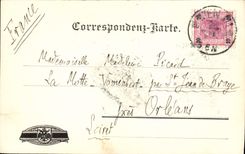 France
Correspondenz-Karte.
WIEN
Mademoiselle Madeleine Picard
La Motte par St Jean de Braye
près Orléans
Loiret